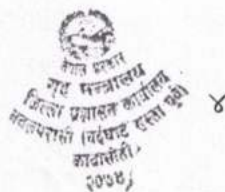 नेपाल सरकार
गृह मन्त्रालय
जिल्ला प्रशासन कार्यालय
नवलपरासी (वर्दघाट सुस्ता पूर्व)
कावासोती
२०७४
४